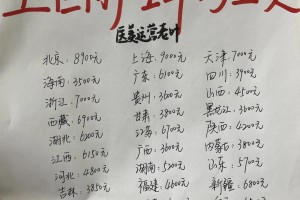 医美运营老叶
北京：8900元 上海：9000元 天津：7000元
海南：3500元 广东：6100元 四川：3900元
浙江：7000元 贵州：3600元 山西：4500元
西藏：6900元 甘肃：3800元 黑龙江：3600元
湖北：6200元 江苏：6700元 陕西：4200元
江西：6150元 广西：3600元 内蒙古：3800元
河北：4800元 湖南：5200元 山东：5700元
吉林：3850元 福建：4600元 新疆：6800元